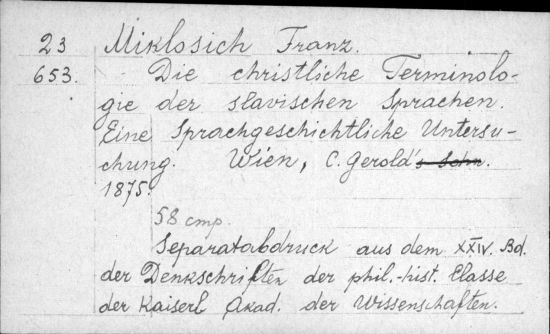 23 Miklosich Franz.
653. Die christliche Terminolo-
gie der slavischen Sprachen.
Eine Sprachgeschichtliche Untersu-
chung. Wien, C. Gerold's Sohn.
1875.
58 cmp.
Separatabdruck aus dem XXIV. Bd.
der Denkschriften der phil.-hist. Classe
der Kaiserl Akad. der Wissenschaften.